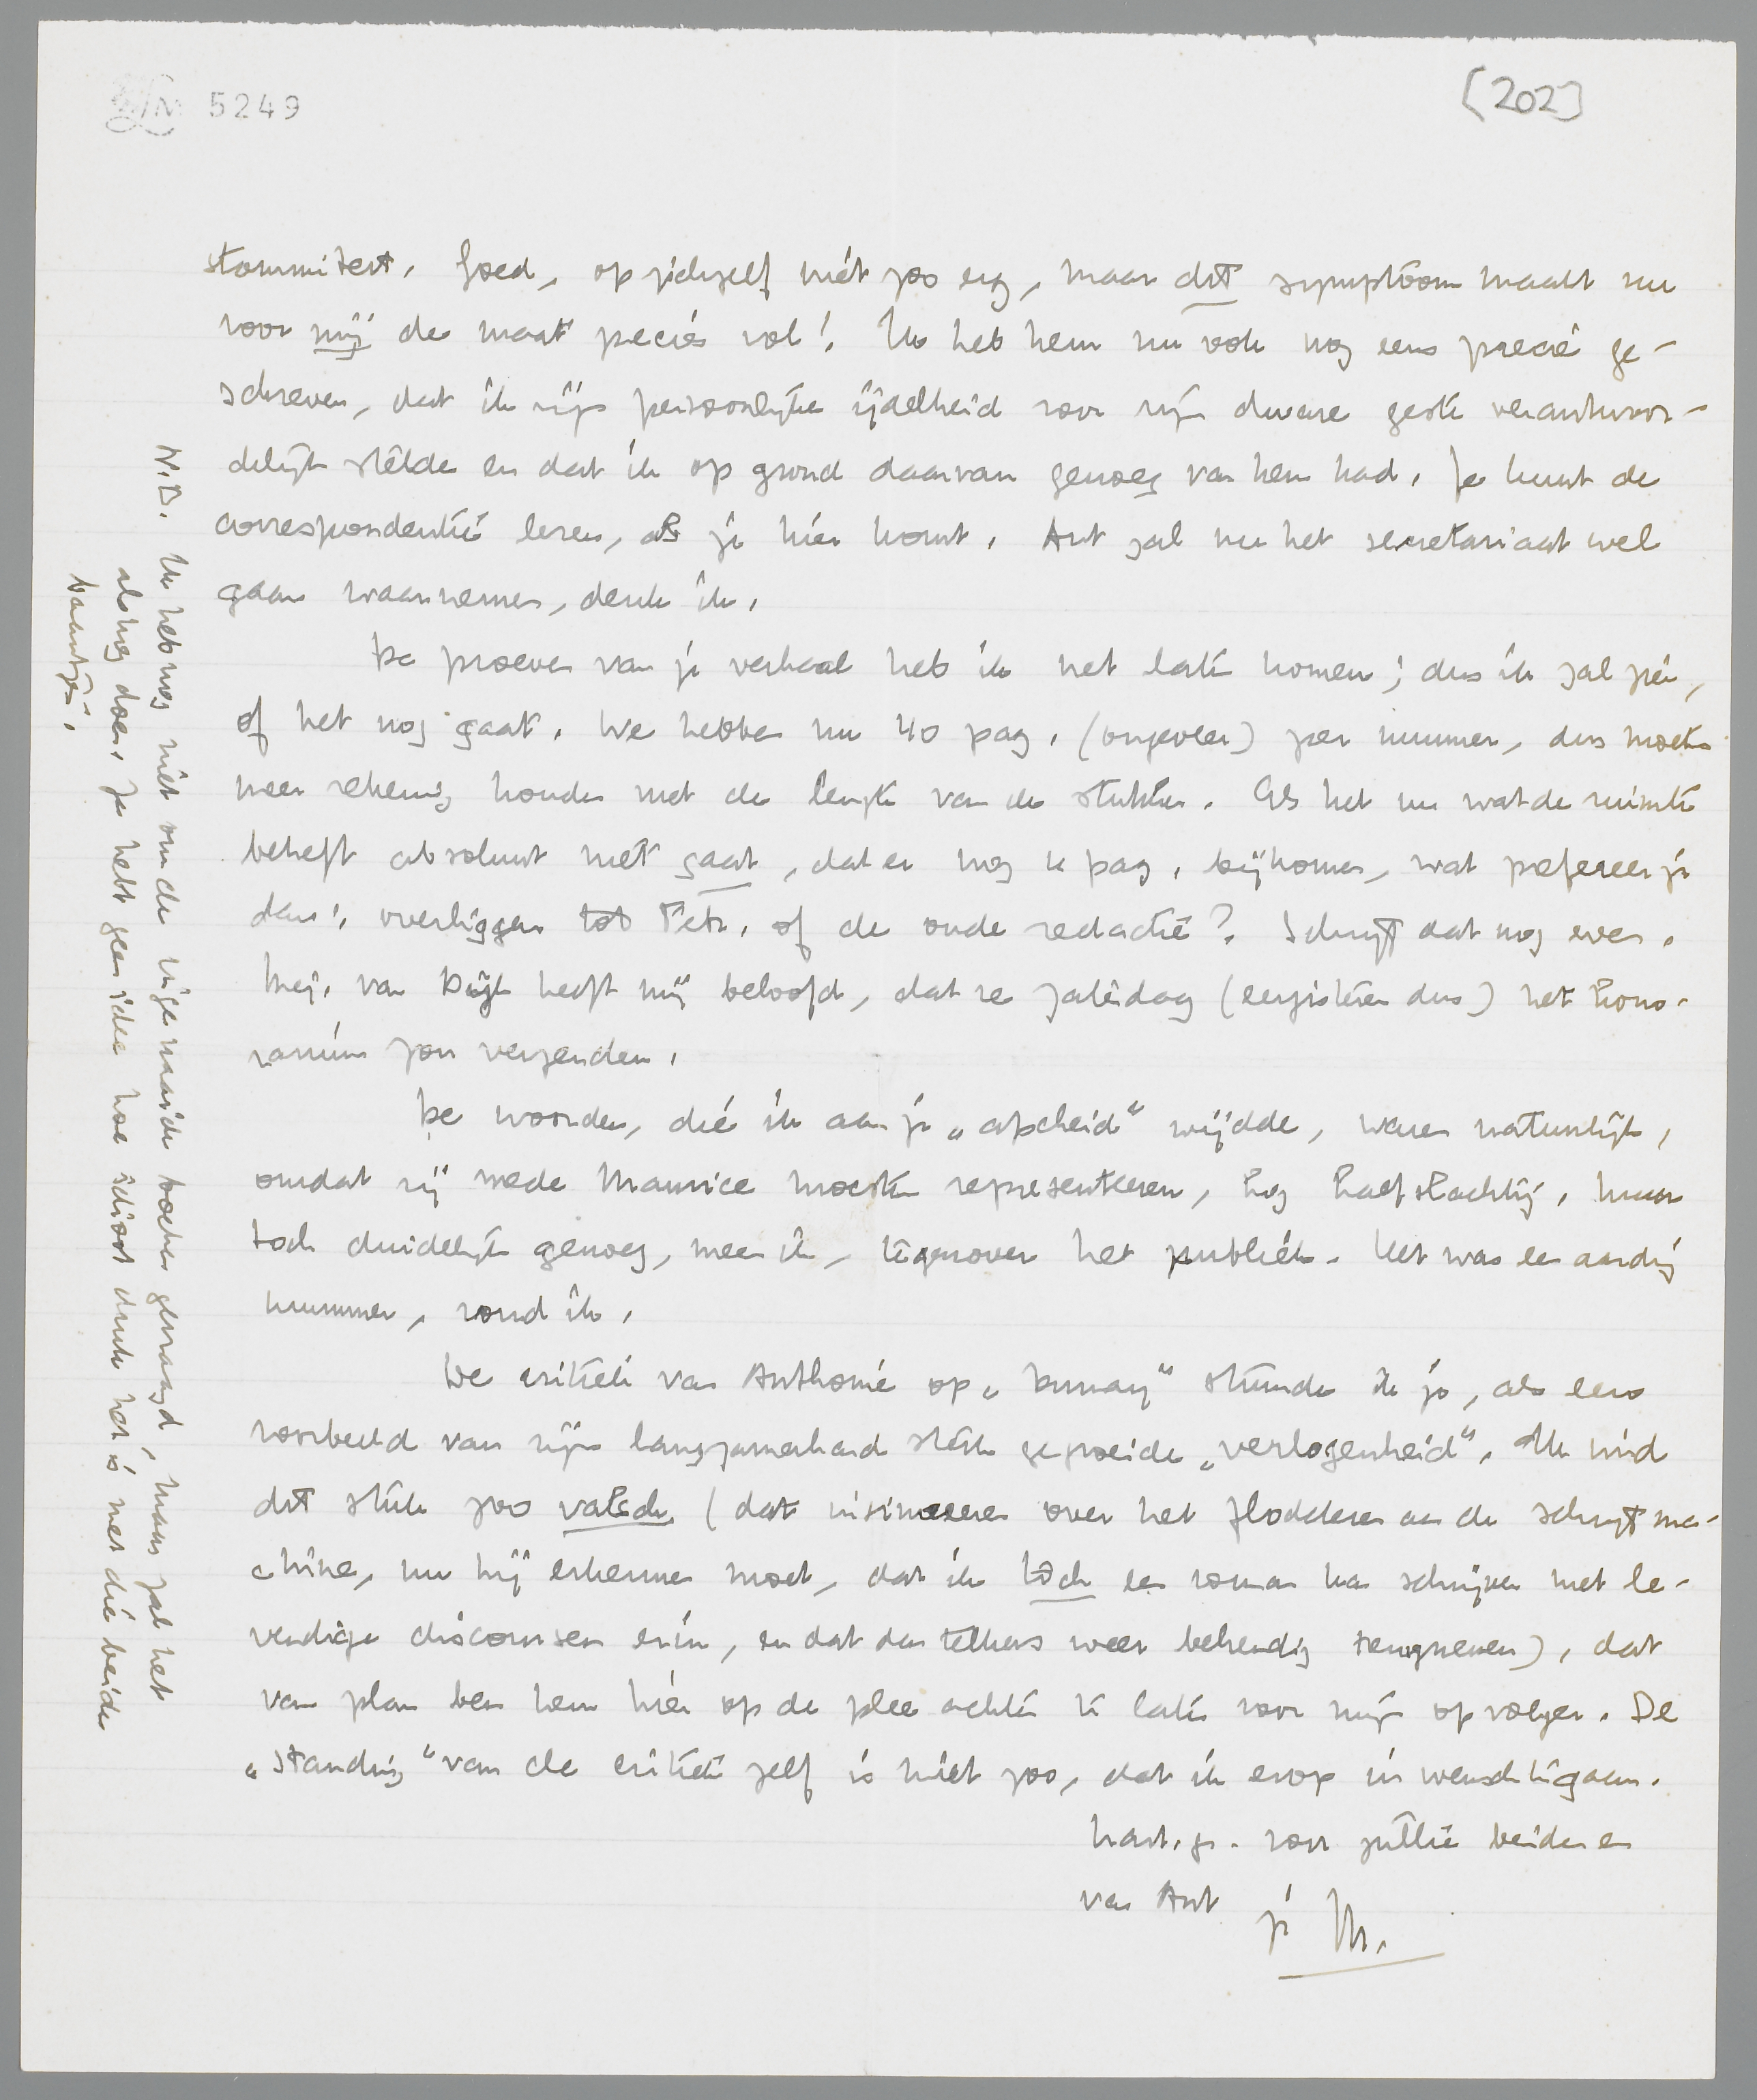 5249
[202]
stommiteit. Goed, op zichzelf niet zoo erg, maar dit symptoom maakt nu
voor mij de maat precies vol! Ik heb hem nu ook nog eens precies ge-
schreven, dat ik zijn persoonlijke ijdelheid voor zijn dwaze geste verantwoor-
delijk stelde en dat ik op grond daarvan genoeg van hem had. Je kunt de
correspondentie lezen, als je hier komt. Ant zal nu het secretariaat wel
gaan waarnemen, denk ik.
De proeven van je verhaal heb ik net laten komen; dus ik zal zien,
of het nog gaat. We hebben nu 40 pag. (ongeveer) per nummer, dus moeten
meer rekening houden met de lengte van de stukken. Als het nu wat de ruimte
betreft absoluut niet gaat, dat er nog 4 pag. bijkomen, wat prefereer je
dan: overliggen tot Febr. of de oude redactie? Schrijf dat nog even.
Mej. van Duyl heeft mij beloofd, dat ze Zaterdag (eergisteren dus) het hono-
rarium zou verzenden.
De woorden, die ik aan je „afscheid" wijdde, waren natuurlijk,
omdat zij mede Maurice moesten representeeren, nog halfslachtig, maar
toch duidelijk genoeg, meen ik, tegenover het publiek. Het was een aardig
nummer, vond ik.
De critiek van Anthonie op „Dumay" stuurde ik je, als een
voorbeeld van zijn langzamerhand sterk gegroeide „verlogenheid". Ik vind
dit stuk zoo valsch (dat insinueeren over het flodderen aan de schrijfma-
chine, nu hij erkennen moet, dat ik tòch een roman kan schrijven met le-
vendige discoursen erin, en dat dan telkens weer behendig terugnemen), dat
van plan ben hem hier op de plee achter te laten voor mijn opvolger. De
„standing" van de critiek zelf is niet zoo, dat ik erop in wensch te gaan.
hart. gr. voor jullie beiden en
van Ant je M.
N.B. Ik heb nog niet om de bijgenaamde boeken gevraagd, maar zal het
alsnog doen. Je hebt geen idee hoe idioot druk het is met die beide
baantjes.